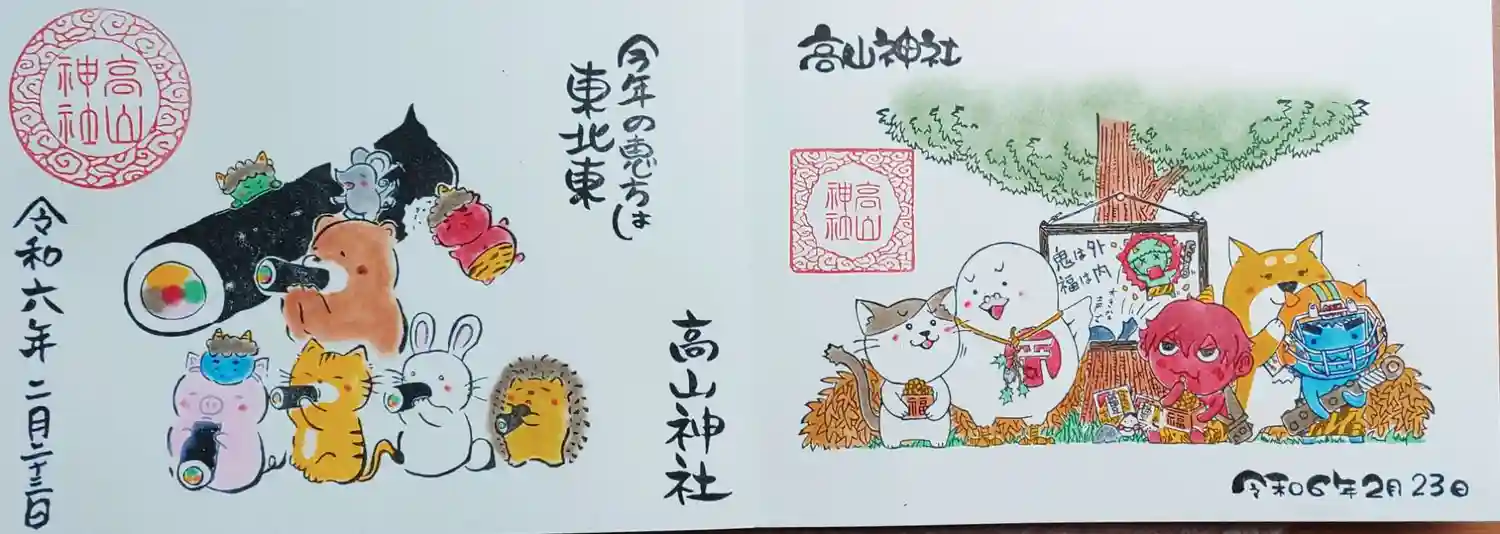 高山神社
今年の恵方は
東北東
高山神社
令和六年二月二十三日
高山神社
高山神社
鬼は外
福は内
福
令和6年2月23日